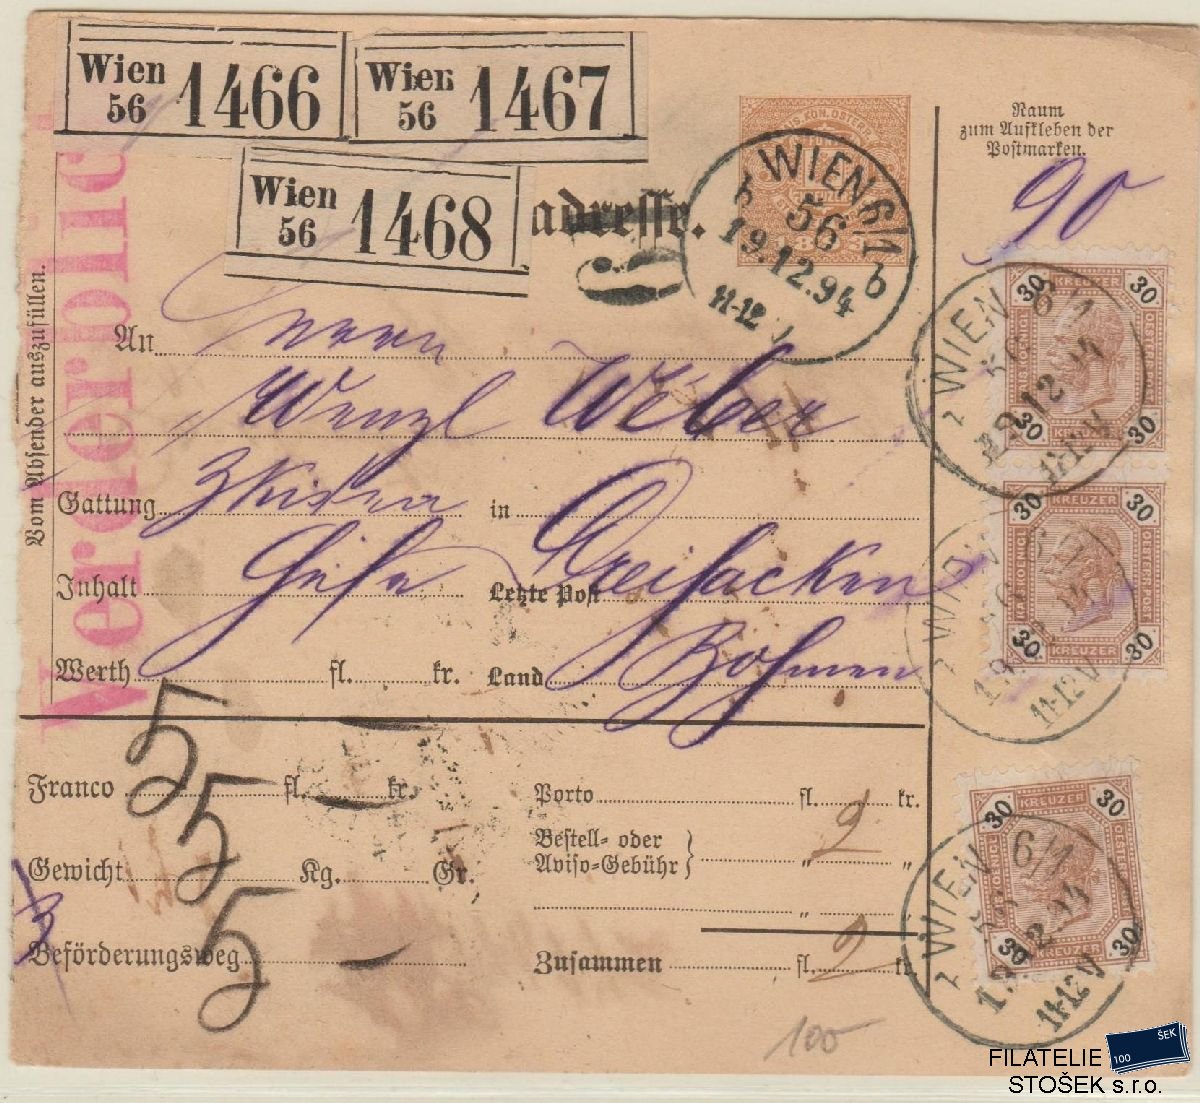 Wien 56 1466
Wien 56 1467
Wien 56 1468
adresse.
KAIS. KÖN. ÖSTERR.
WIEN 6/1 b
56
19.12.94
11-12 V
Raum
zum Aufkleben der
Postmarken.
90
Verderblich
Vom Absender auszufüllen.
An Herrn
Wenzl Weber
Gattung 3 Kisten in
Inhalt Letzte Post
Werth fl. kr. Land Böhmen
30 KREUZER 30
30 30
30 KREUZER 30
30 KREUZER 30
30 KREUZER 30
30 KREUZER 30
WIEN 6/1
19.12.94
11-12 V
WIEN 6/1
11-12 V
WIEN 6/1
11-12 V
5
5
5
Franco fl. kr. Porto fl. kr.
Bestell- oder
Aviso-Gebühr 2
Gewicht Kg. Gr.
3
Beförderungsweg Zusammen fl. 2 kr.
100
FILATELIE
STOŠEK s.r.o.
100 ŠEK